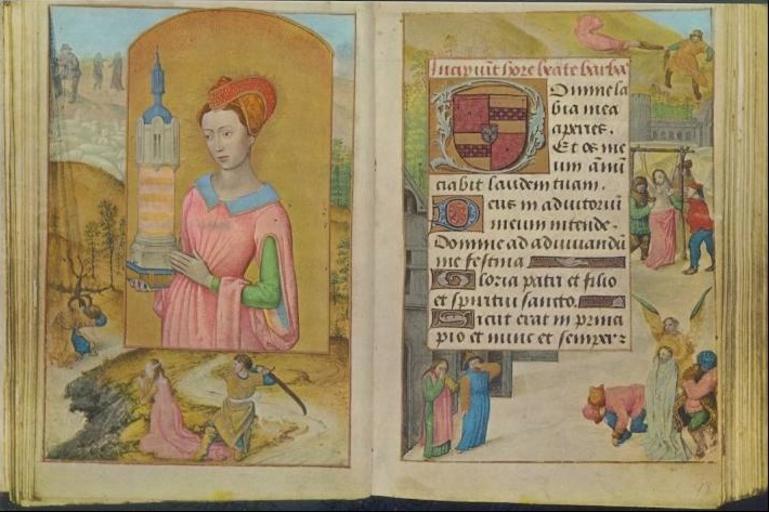 Incipiūt hore beate barba
Domine la
bia mea
aperies.
Et os me
um ānū
ciabit laudem tuam.
Deus in adiutoriū
meum intende.
Domine ad adiuuandū
me festina
Gloria patri et filio
et spiritui sancto.
Sicut erat in princi
pio et nunc et semper: